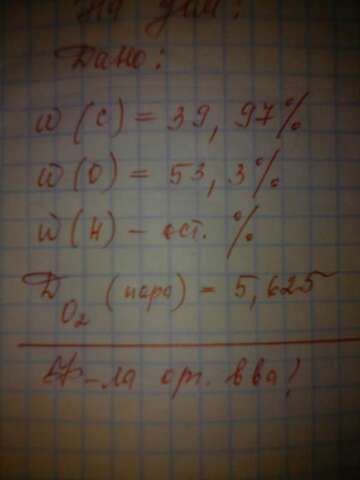 На дом:
Дано:
W (C) = 39, 97%
W (O) = 53, 3%
W (H) - ост. %
D O2 (паро) = 5,625
Ф-ла орг. вва!